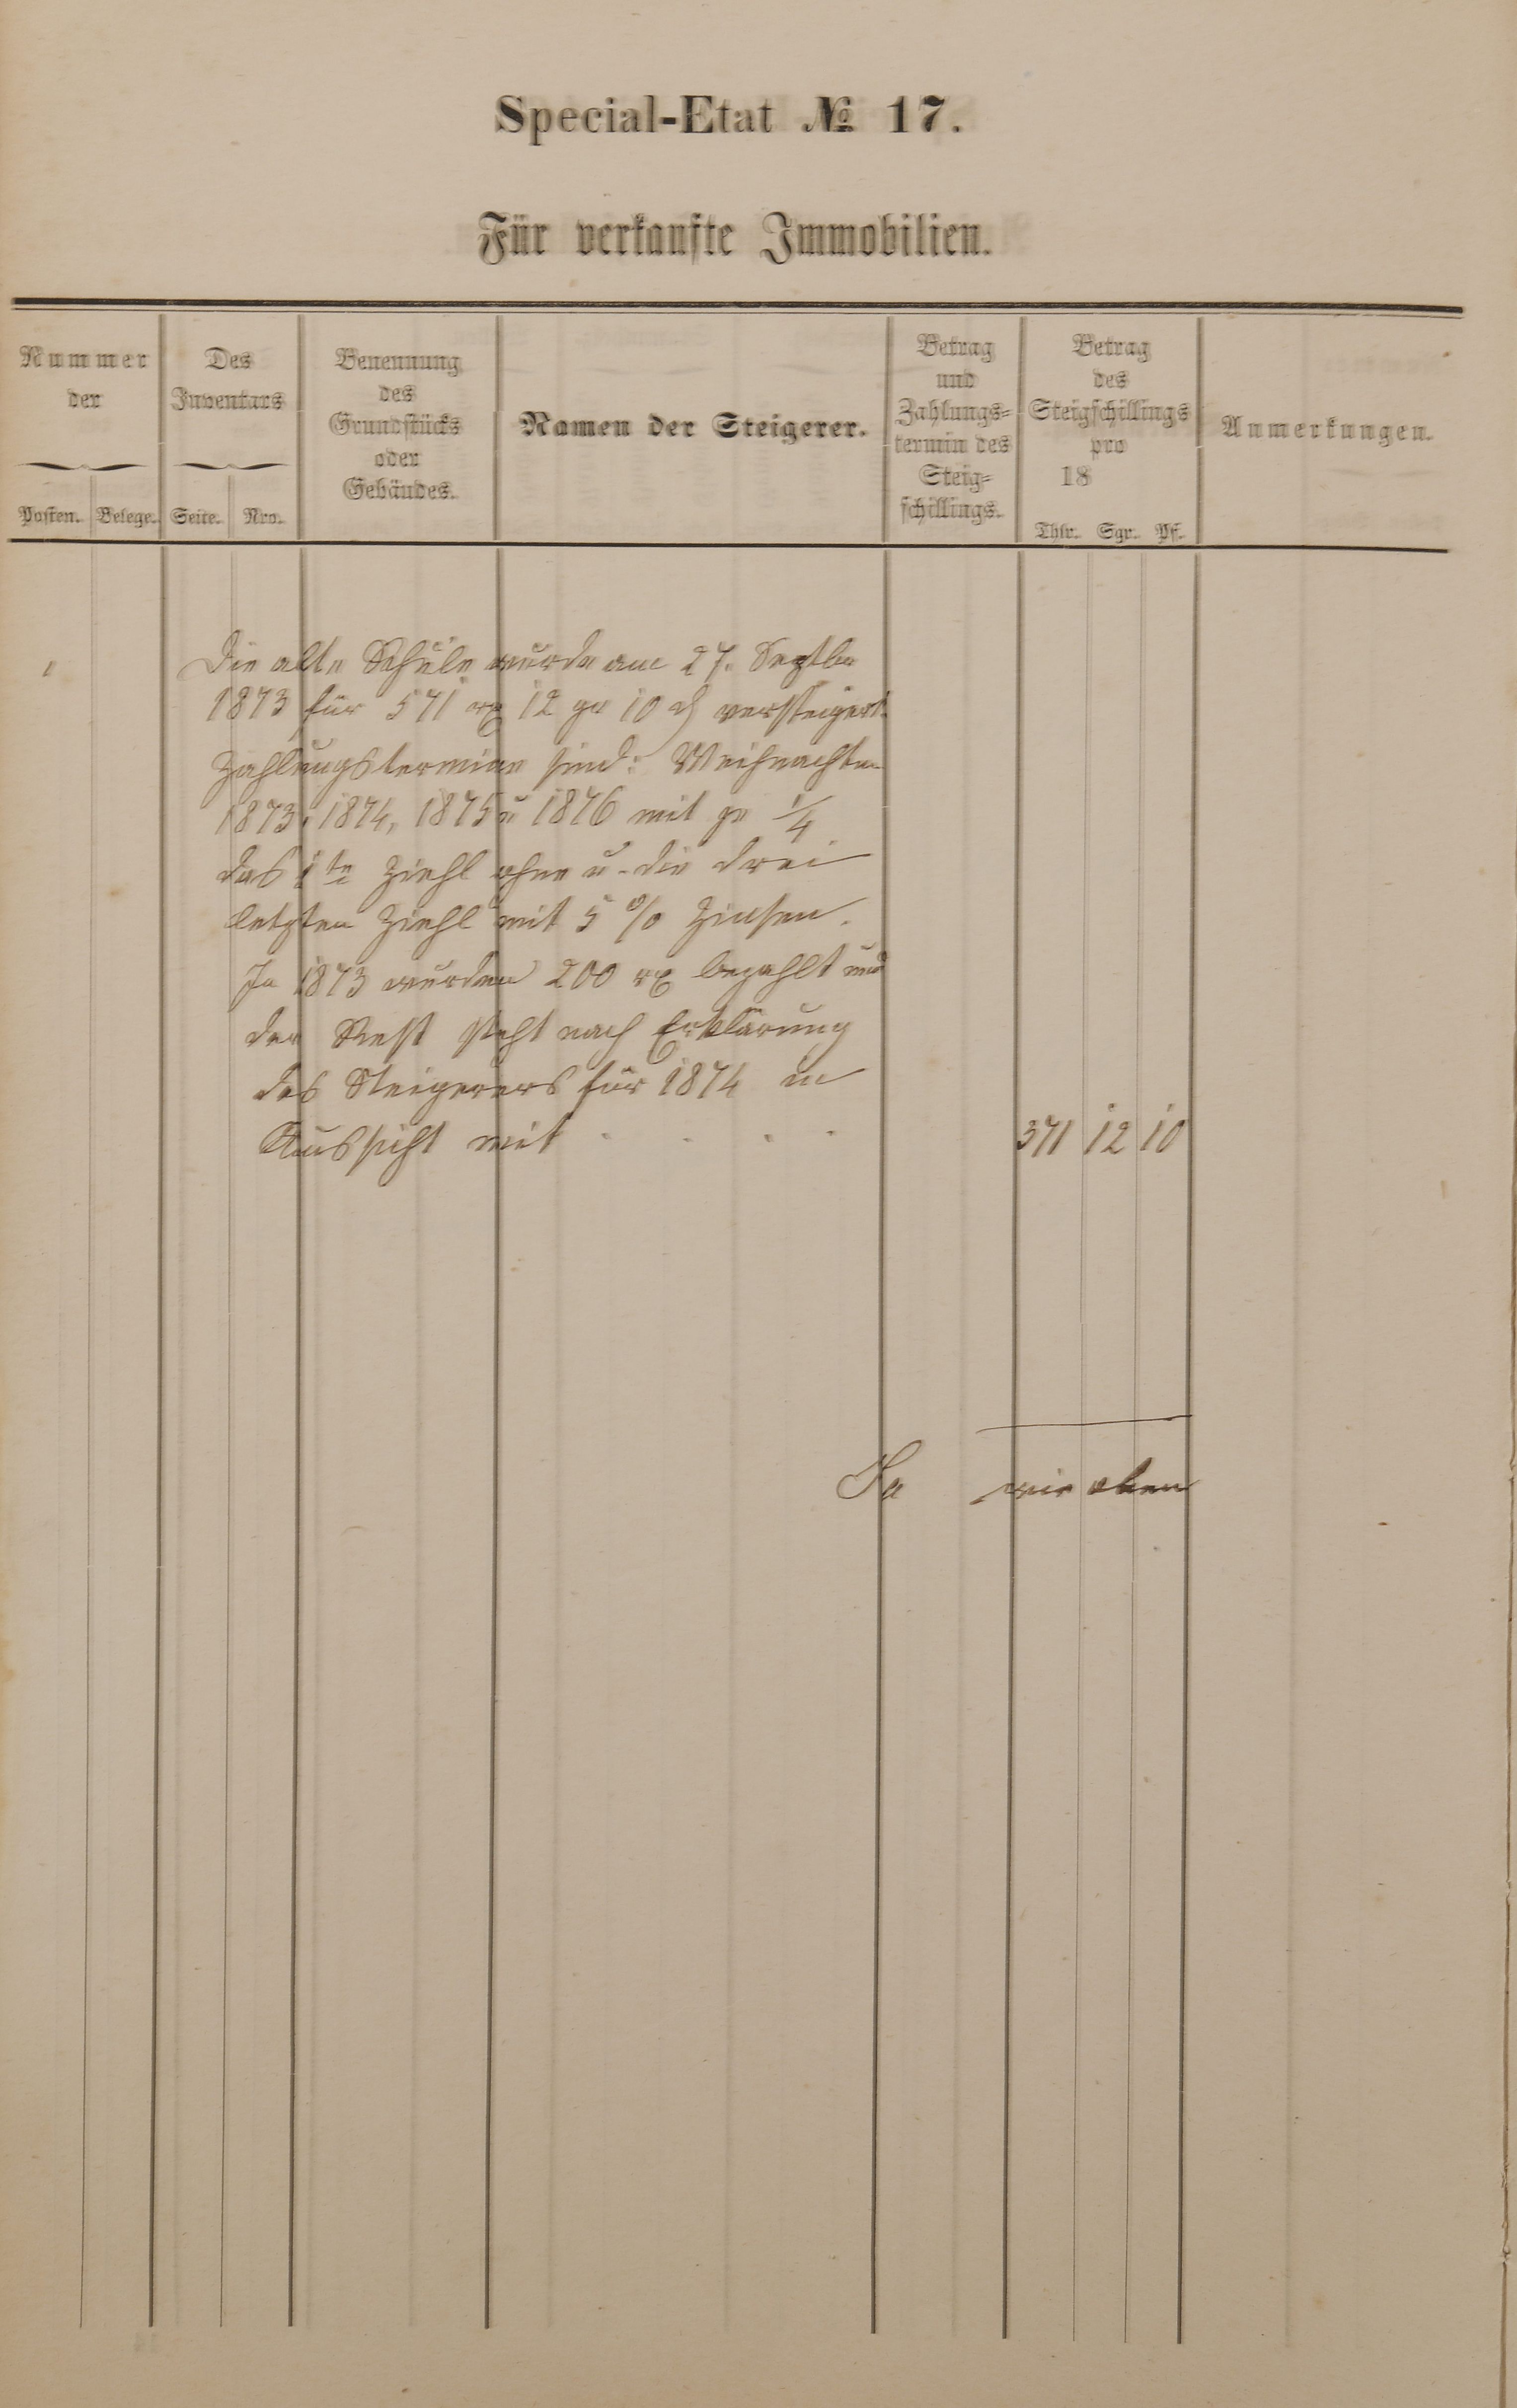 Special-Etat № 17.
Für verkaufte Immobilien.
Nummer
der
Posten. Belege.
Des
Inventars
Seite. Nro.
Benennung
des
Grundstücks
oder
Gebäudes.
Namen der Steigerer.
Betrag
und
Zahlungs-
termin des
Steig-
schillings.
Betrag
des
Steigschillings
pro
18
Thlr. Sgr. Pf.
Anmerkungen.
1 Die alte Schule wurde am 27. Septbr
1873 für 571 rℓ 12 gr 10 ₰ versteigert.
Zahlungstermine sind: Weihnachten
1873, 1874, 1875 u 1876 mit je 1/4
das 1te Ziehl ohne u. die drei
letzten Ziehl mit 5 % Zinsen.
In 1873 wurden 200 rℓ bezahlt und
der Rest steht nach Erklärung
des Steigerers für 1874 in
Aussicht mit . . . . 371 12 10
Sa wie oben